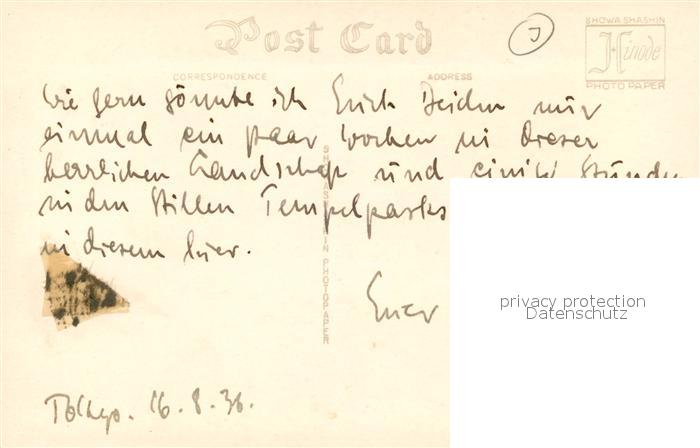 Post Card
J
SHOWA SHASHIN
Hinode
PHOTO PAPER
CORRESPONDENCE
ADDRESS
Wie gern gönnte ich Euch beiden nur
einmal ein paar Wochen in dieser
herrlichen Landschaft und einige Stunden
in den stillen Tempelparks
in diesem hier.
Euer
Tokyo. 16.8.36.
SHOWA SHASHIN PHOTOPAPER
privacy protection
Datenschutz